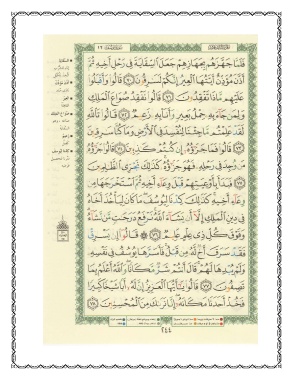 فَلَمَّا جَهَّزَهُم بِجَهَازِهِمْ جَعَلَ ٱلسِّقَايَةَ فِى رَحْلِ أَخِيهِ ثُمَّ
أَذَّنَ مُؤَذِّنٌ أَيَّتُهَا ٱلْعِيرُ إِنَّكُمْ لَسَٰرِقُونَ ٧٠ قَالُوا۟ وَأَقْبَلُوا۟
عَلَيْهِم مَّاذَا تَفْقِدُونَ ٧١ قَالُوا۟ نَفْقِدُ صُوَاعَ ٱلْمَلِكِ
وَلِمَن جَآءَ بِهِۦ حِمْلُ بَعِيرٍ وَأَنَا۠ بِهِۦ زَعِيمٌ ٧٢ قَالُوا۟ تَٱللَّهِ
لَقَدْ عَلِمْتُم مَّا جِئْنَا لِنُفْسِدَ فِى ٱلْأَرْضِ وَمَا كُنَّا سَٰرِقِينَ
٧٣ قَالُوا۟ فَمَا جَزَٰٓؤُهُۥٓ إِن كُنتُمْ كَٰذِبِينَ ٧٤ قَالُوا۟ جَزَٰٓؤُهُۥ
مَن وُجِدَ فِى رَحْلِهِۦ فَهُوَ جَزَٰٓؤُهُۥ كَذَٰلِكَ نَجْزِى ٱلظَّٰلِمِينَ
٧٥ فَبَدَأَ بِأَوْعِيَتِهِمْ قَبْلَ وِعَآءِ أَخِيهِ ثُمَّ ٱسْتَخْرَجَهَا مِن
وِعَآءِ أَخِيهِ كَذَٰلِكَ كِدْنَا لِيُوسُفَ مَا كَانَ لِيَأْخُذَ أَخَاهُ
فِى دِينِ ٱلْمَلِكِ إِلَّآ أَن يَشَآءَ ٱللَّهُ نَرْفَعُ دَرَجَٰتٍ مَّن نَّشَآءُ
وَفَوْقَ كُلِّ ذِى عِلْمٍ عَلِيمٌ ٧٦ قَالُوٓا۟ إِن يَسْرِقْ
فَقَدْ سَرَقَ أَخٌ لَّهُۥ مِن قَبْلُ فَأَسَرَّهَا يُوسُفُ فِى نَفْسِهِۦ
وَلَمْ يُبْدِهَا لَهُمْ قَالَ أَنتُمْ شَرٌّ مَّكَانًا وَٱللَّهُ أَعْلَمُ بِمَا
تَصِفُونَ ٧٧ قَالُوا۟ يَٰٓأَيُّهَا ٱلْعَزِيزُ إِنَّ لَهُۥٓ أَبًا شَيْخًا كَبِيرًا
فَخُذْ أَحَدَنَا مَكَانَهُۥٓ إِنَّا نَرَىٰكَ مِنَ ٱلْمُحْسِنِينَ ٧٨
٢٤٤